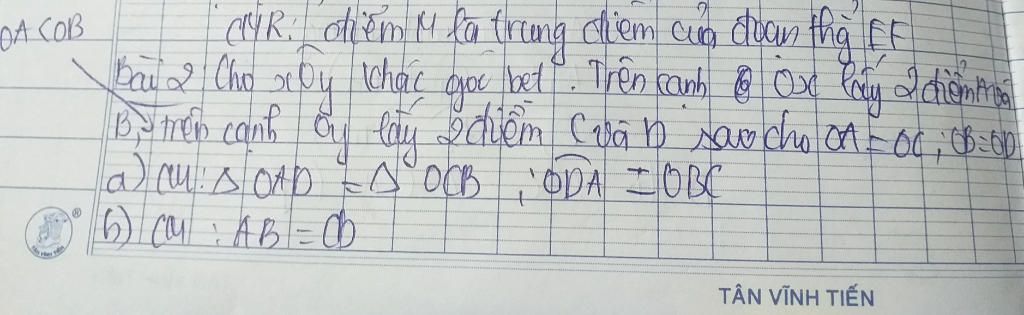 CMR: điểm M là trung điểm của đoạn thg EF
OA < OB
Bài 2 Cho xOy khác góc bẹt. Trên cạnh Ox lấy 2 điểm A và
B, trên cạnh Oy lấy 2 điểm C và D sao cho OA = OC; OB = OD
a) CM: Δ OAD = Δ OCB ; ODA = OBC
b) CM: AB = CD
TÂN VĨNH TIẾN